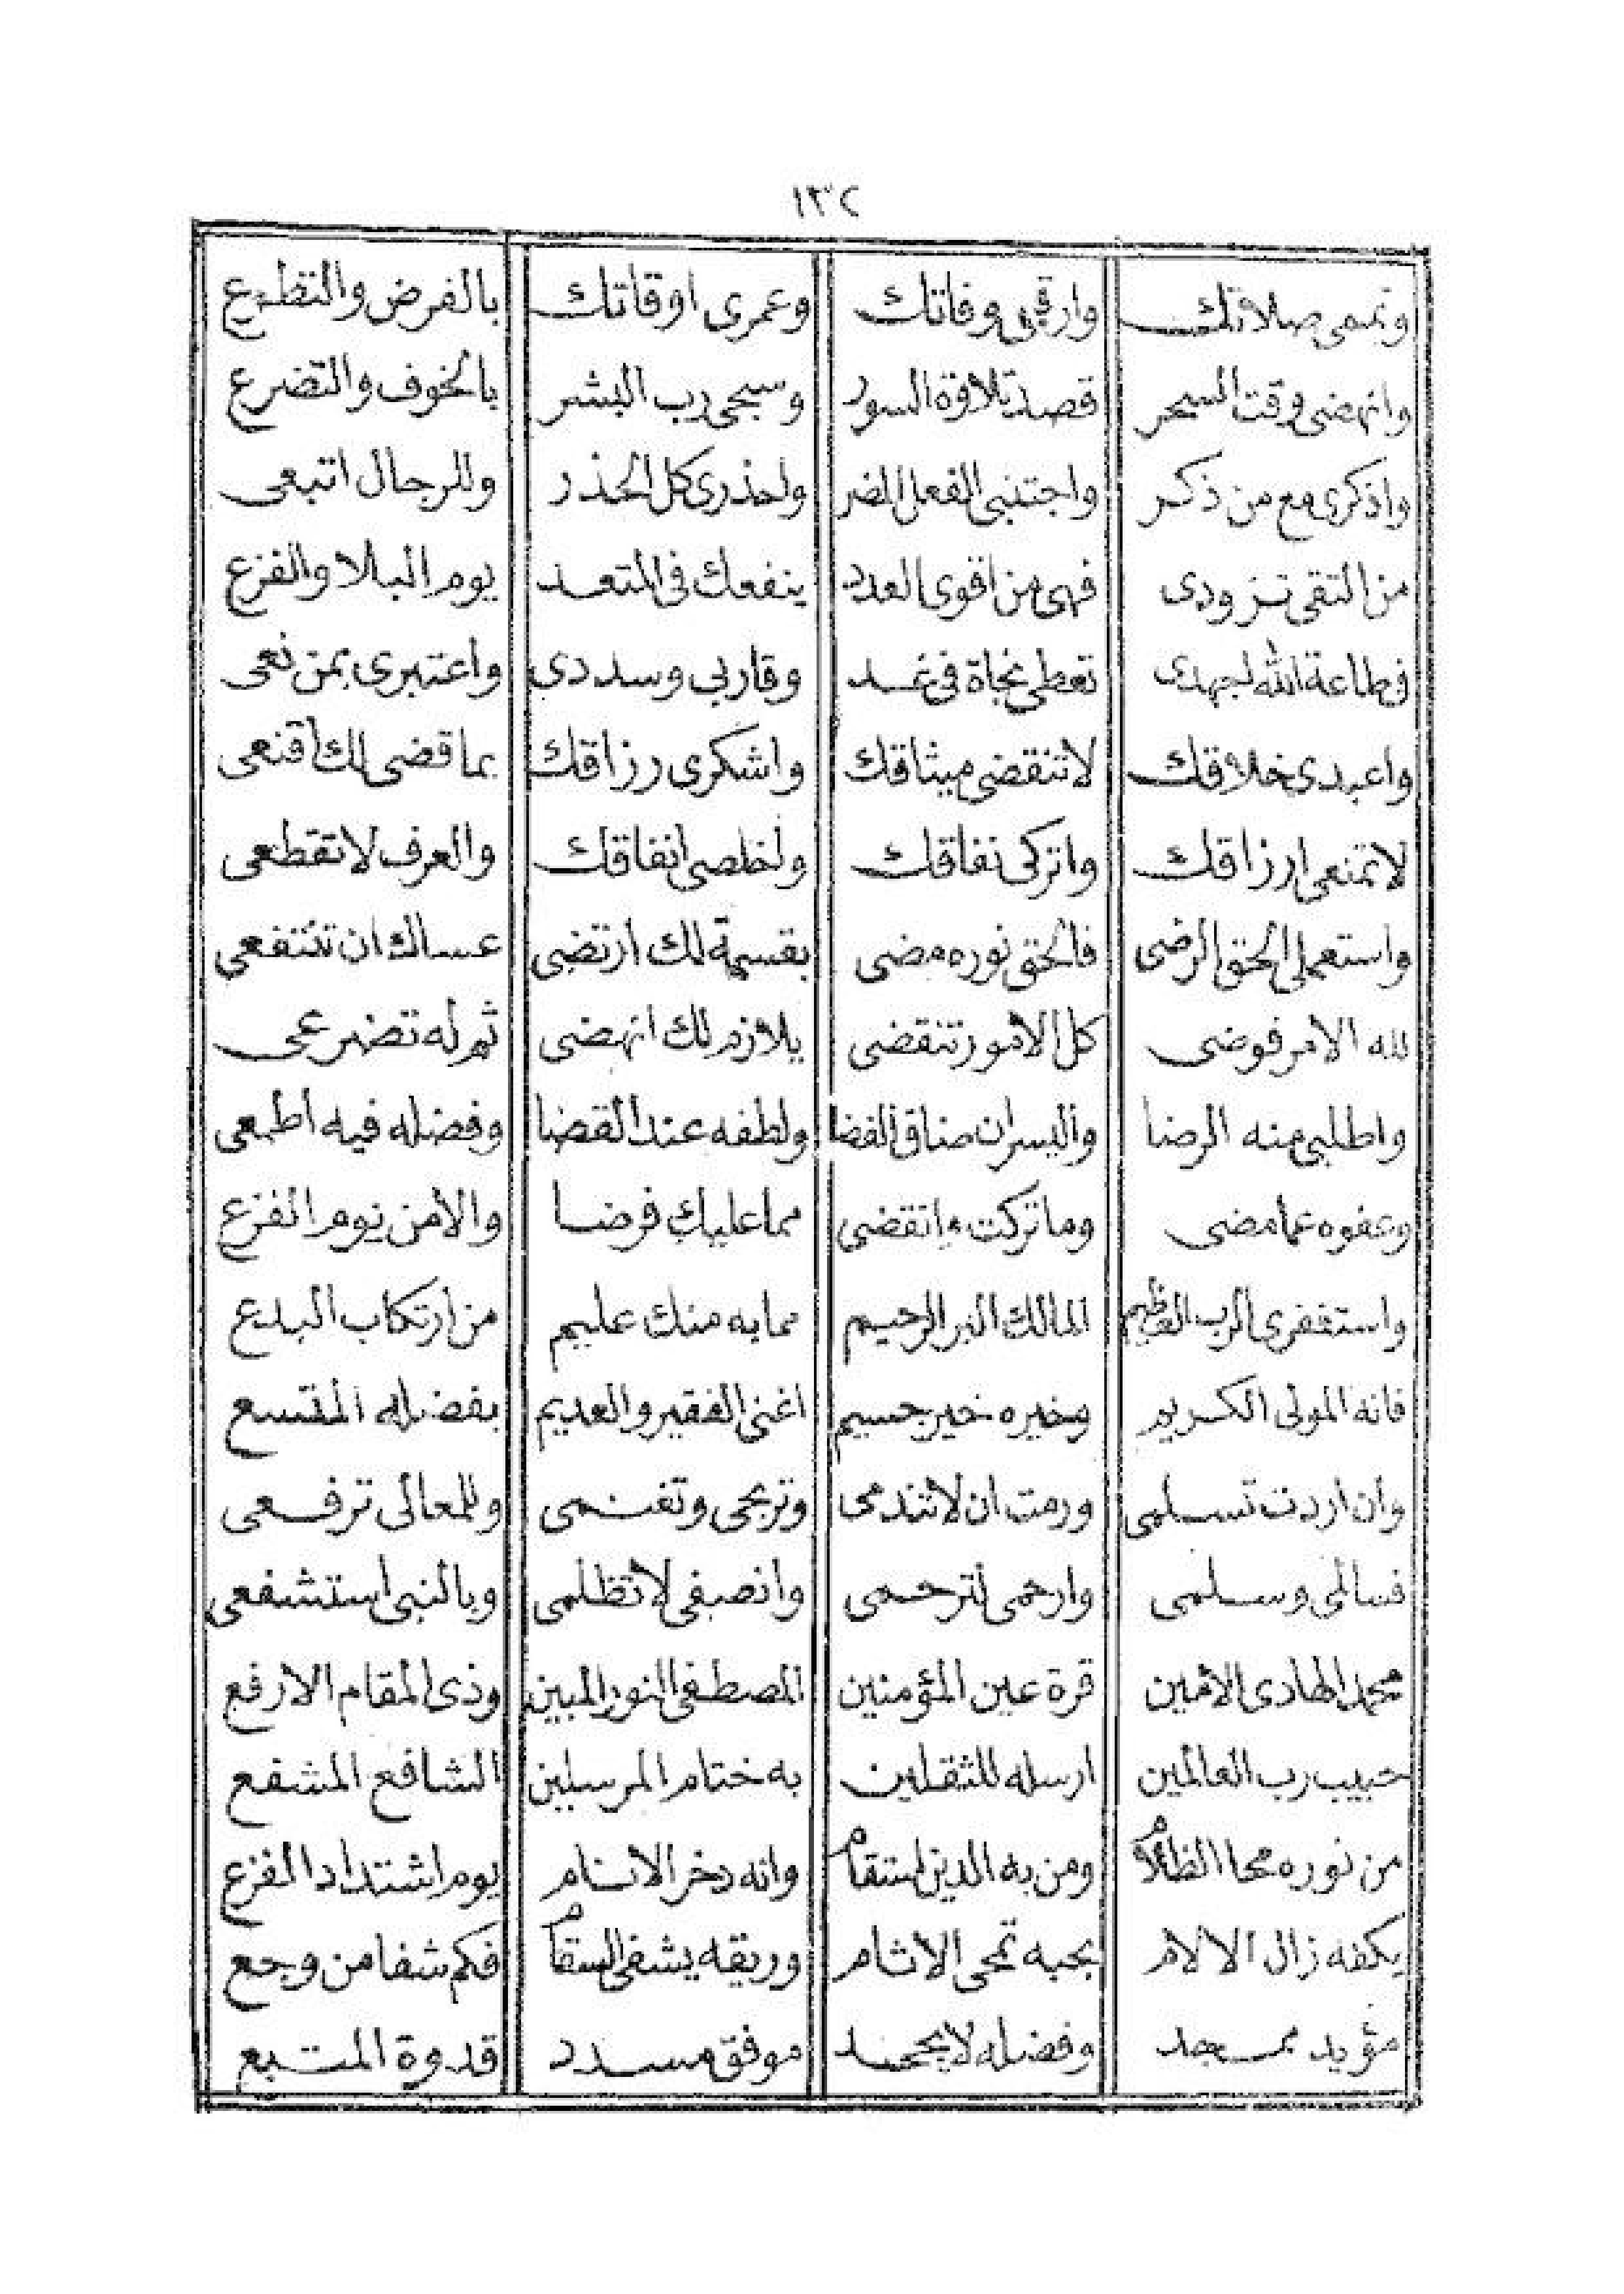 ١٣٢
وتممى صلاتك وارقبى وفاتك وعمرى اوقاتك بالفرض والتطوع
وانهضى وقت السحر قصد تلاوة السور وسبحى رب البشر بالخوف والتضرع
واذكرى مع من ذكر واجتنبى الفعل المضر واحذرى كل الحذر وللرجال اتبعى
من التقى تزودى فهى من اقوى العدد ينفعك فى المتعد يوم البلا والفزع
فى طاعة الله اجهدى تعطى نجاة فى غد وقاربى وسددى واعتبرى بمن نعى
واعبدى خلاقك لا تنقضى ميثاقك واشكرى رزاقك بما قضى لك اقنعى
لا تمنعى ارزاقك واتركى نفاقك واخلصى انفاقك والعرف لا تقطعى
واستعملى الحق الرضى فالحق نوره مضى بقسمة لك ارتضى عساك ان تنتفعى
لله الامر فوضى كل الامور تنقضى يلازم لك انهضى ثم له تضرعى
واطلبى منه الرضا واليسر ان ضاق الفضا ولطفه عند القضا وفضله فيه اطمعى
وعفوه عما مضى وما تركت وانقضى مما عليك فرضا والامن يوم الفزع
واستغفرى الرب العظيم المالك البر الرحيم مما به منك عليم من ارتكاب البدع
فانه المولى الكريم وخيره خير جسيم اغنى الفقير والعديم بفضله المتسع
وان اردت تسلمى ورمت ان لا تندمى وتربحى وتغنمى وللمعالى ترفعى
فسالمى وسلمى وارحمى لترحمى وانصفى لا تظلمى وبالنبى استشفعى
محمد الهادى الامين قرة عين المؤمنين المصطفى النور المبين وذى المقام الارفع
حبيب رب العالمين ارسله للثقلين به ختام المرسلين الشافع المشفع
من نوره محا الظلام ومن به الدين استقام وانه ذخر الانام يوم اشتداد الفزع
بكفه زال الالام بحبه تمحى الاثام وريقه يشفى السقام فكم شفا من وجع
مؤيد ممجد وفضله لا يجحد موفق مسدد قدوة المتبع